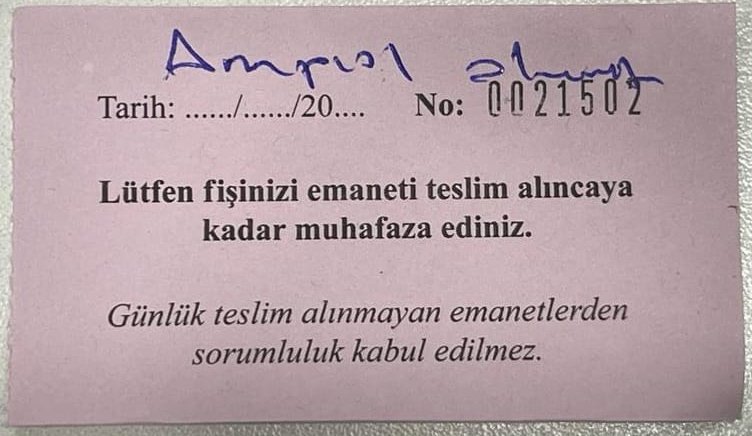 Tarih: ....../....../20.... No: 0021502
Lütfen fişinizi emaneti teslim alıncaya
kadar muhafaza ediniz.
Günlük teslim alınmayan emanetlerden
sorumluluk kabul edilmez.